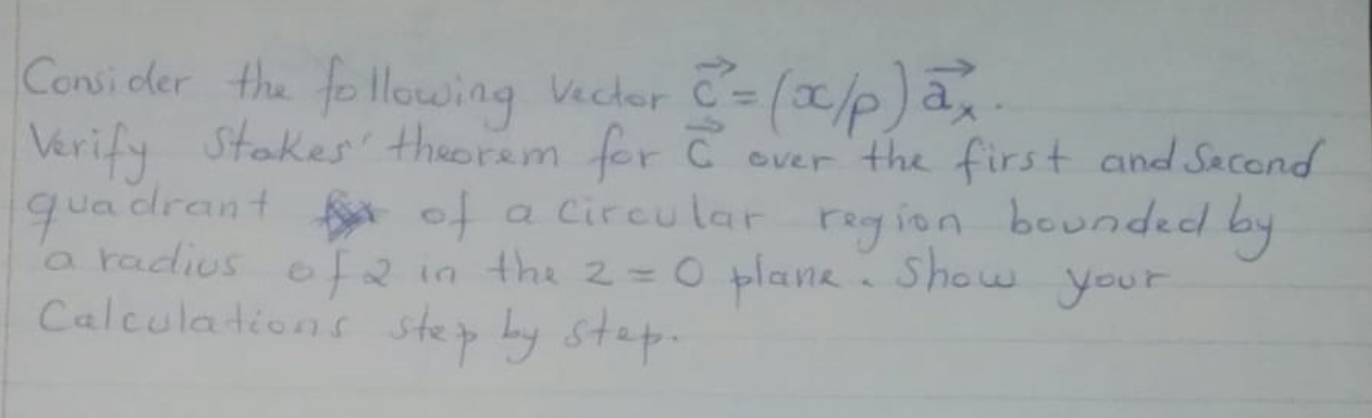 Consider the following vector C⃗ = (x/ρ) a⃗ₓ.
Verify Stokes' theorem for C⃗ over the first and Second
quadrant of a circular region bounded by
a radius of 2 in the z = 0 plane. Show your
Calculations step by step.